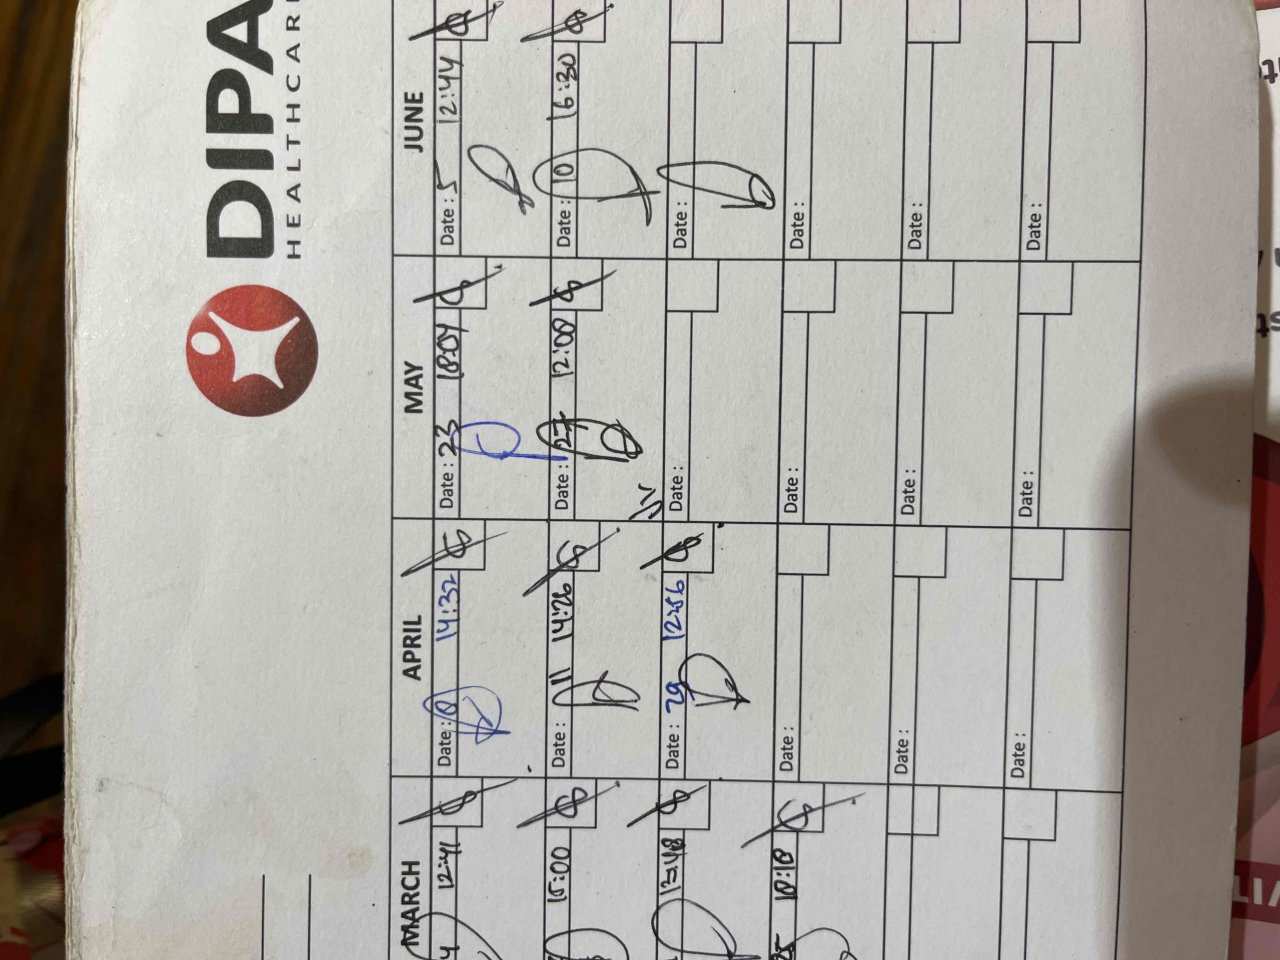 DIPA
HEALTHCAR
MARCH
APRIL
MAY
JUNE
4 12:41
Date : 8 14:32
Date : 23 18:04
Date : 5 12:44
15:00
Date : 11 14:26
Date : 27 12:00
Date : 10 16:30
13:48
Date : 29
Date :
Date :
25 18:18
Date :
Date :
Date :
Date :
Date :
Date :
Date :
Date :
Date :